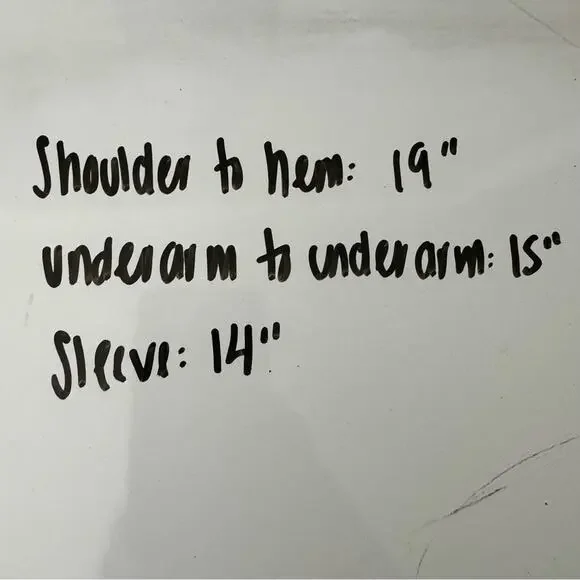 Shoulder to hem: 19"
underarm to underarm: 15"
Sleeve: 14"